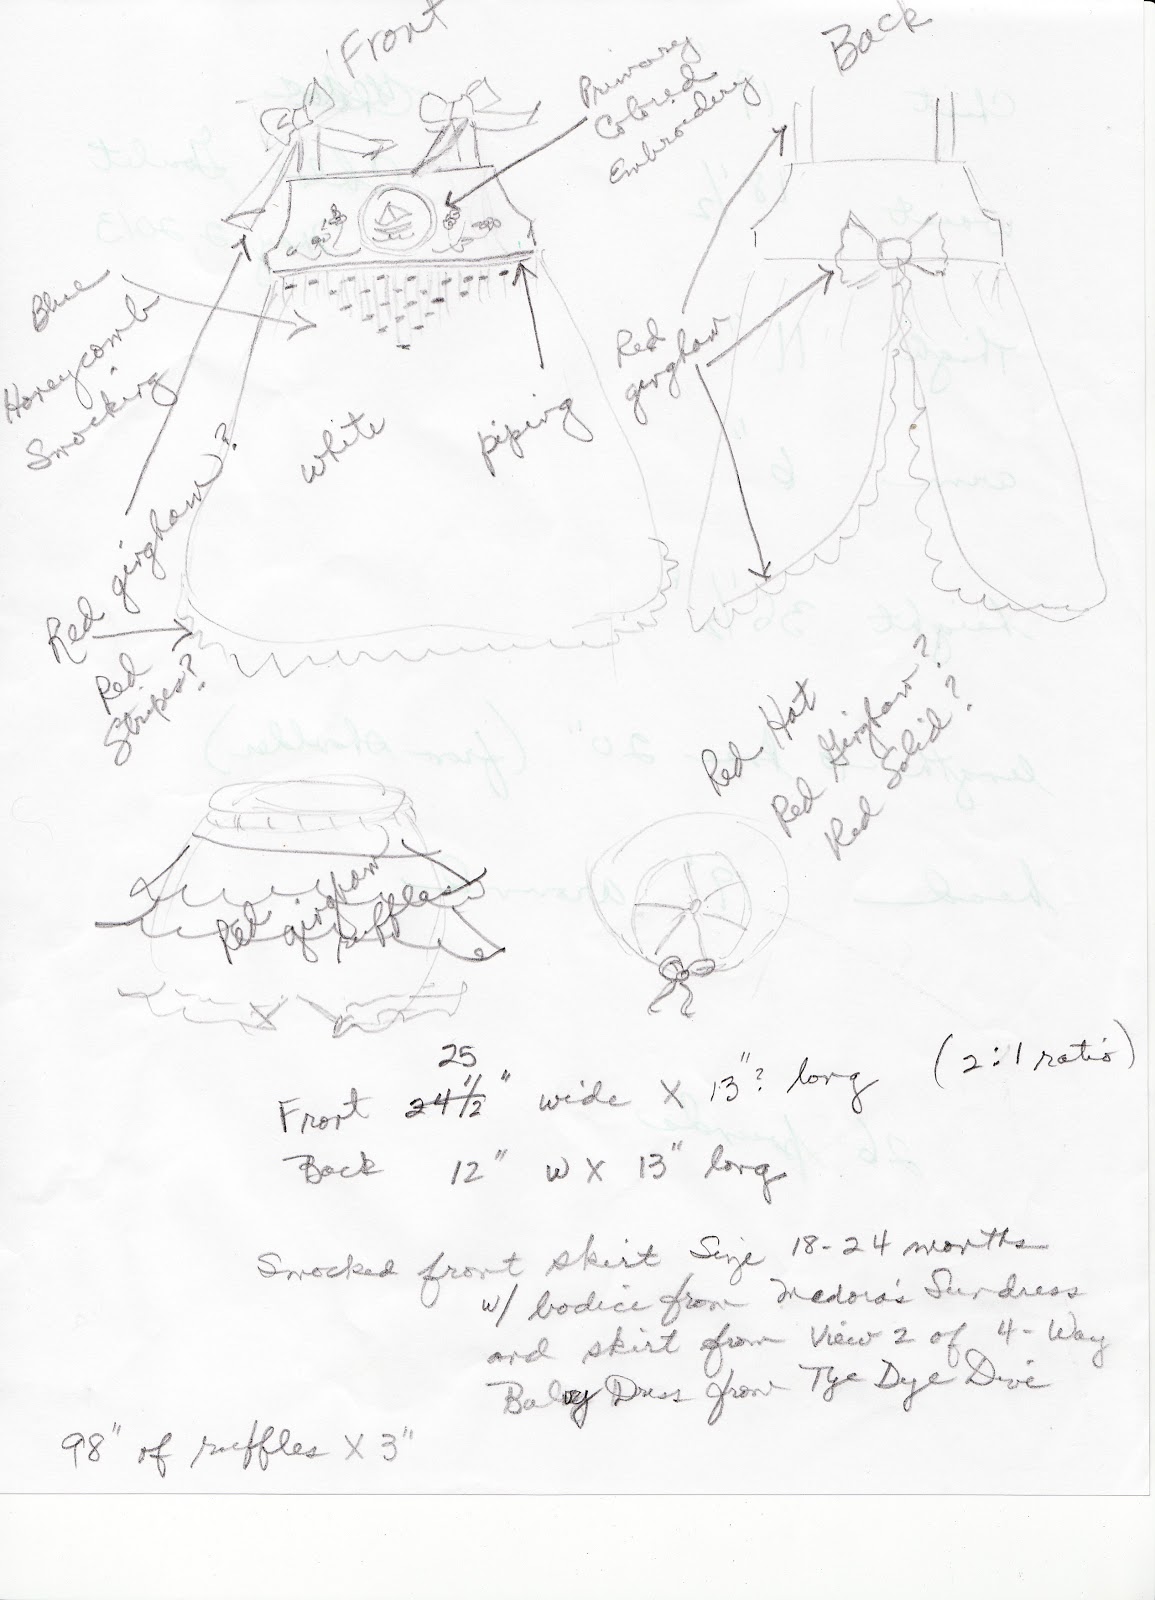 Front
Back
Primary
Colored
Embroidery
Blue
Honeycomb
Smocking
white
piping
Red
gingham
Red gingham?
Red
Stripes?
Red Hat
Red Gingham?
Red Solid?
Red gingham
ruffles
25
Front 24 1/2" wide X 13"? long (2:1 ratio)
Back 12" w X 13" long
Smocked front skirt Size 18-24 months
w/ bodice from Madora's Sundress
and skirt from View 2 of 4-Way
Baby Dress from Tye Dye Diva
98" of ruffles X 3"